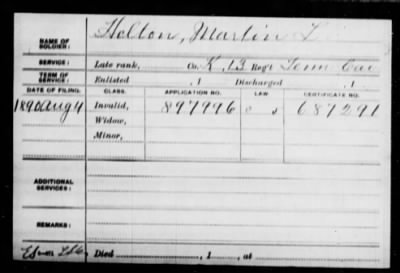 NAME OF SOLDIER: Helton, Martin L
SERVICE: Late rank, Co. K, 13 Reg't Tenn Cav
TERM OF SERVICE: Enlisted , 1 Discharged , 1
DATE OF FILING. CLASS. APPLICATION NO. LAW. CERTIFICATE NO.
1890 Aug 4 Invalid, 897996 687291
Widow,
Minor,
ADDITIONAL SERVICES:
REMARKS:
Died , 1 , at